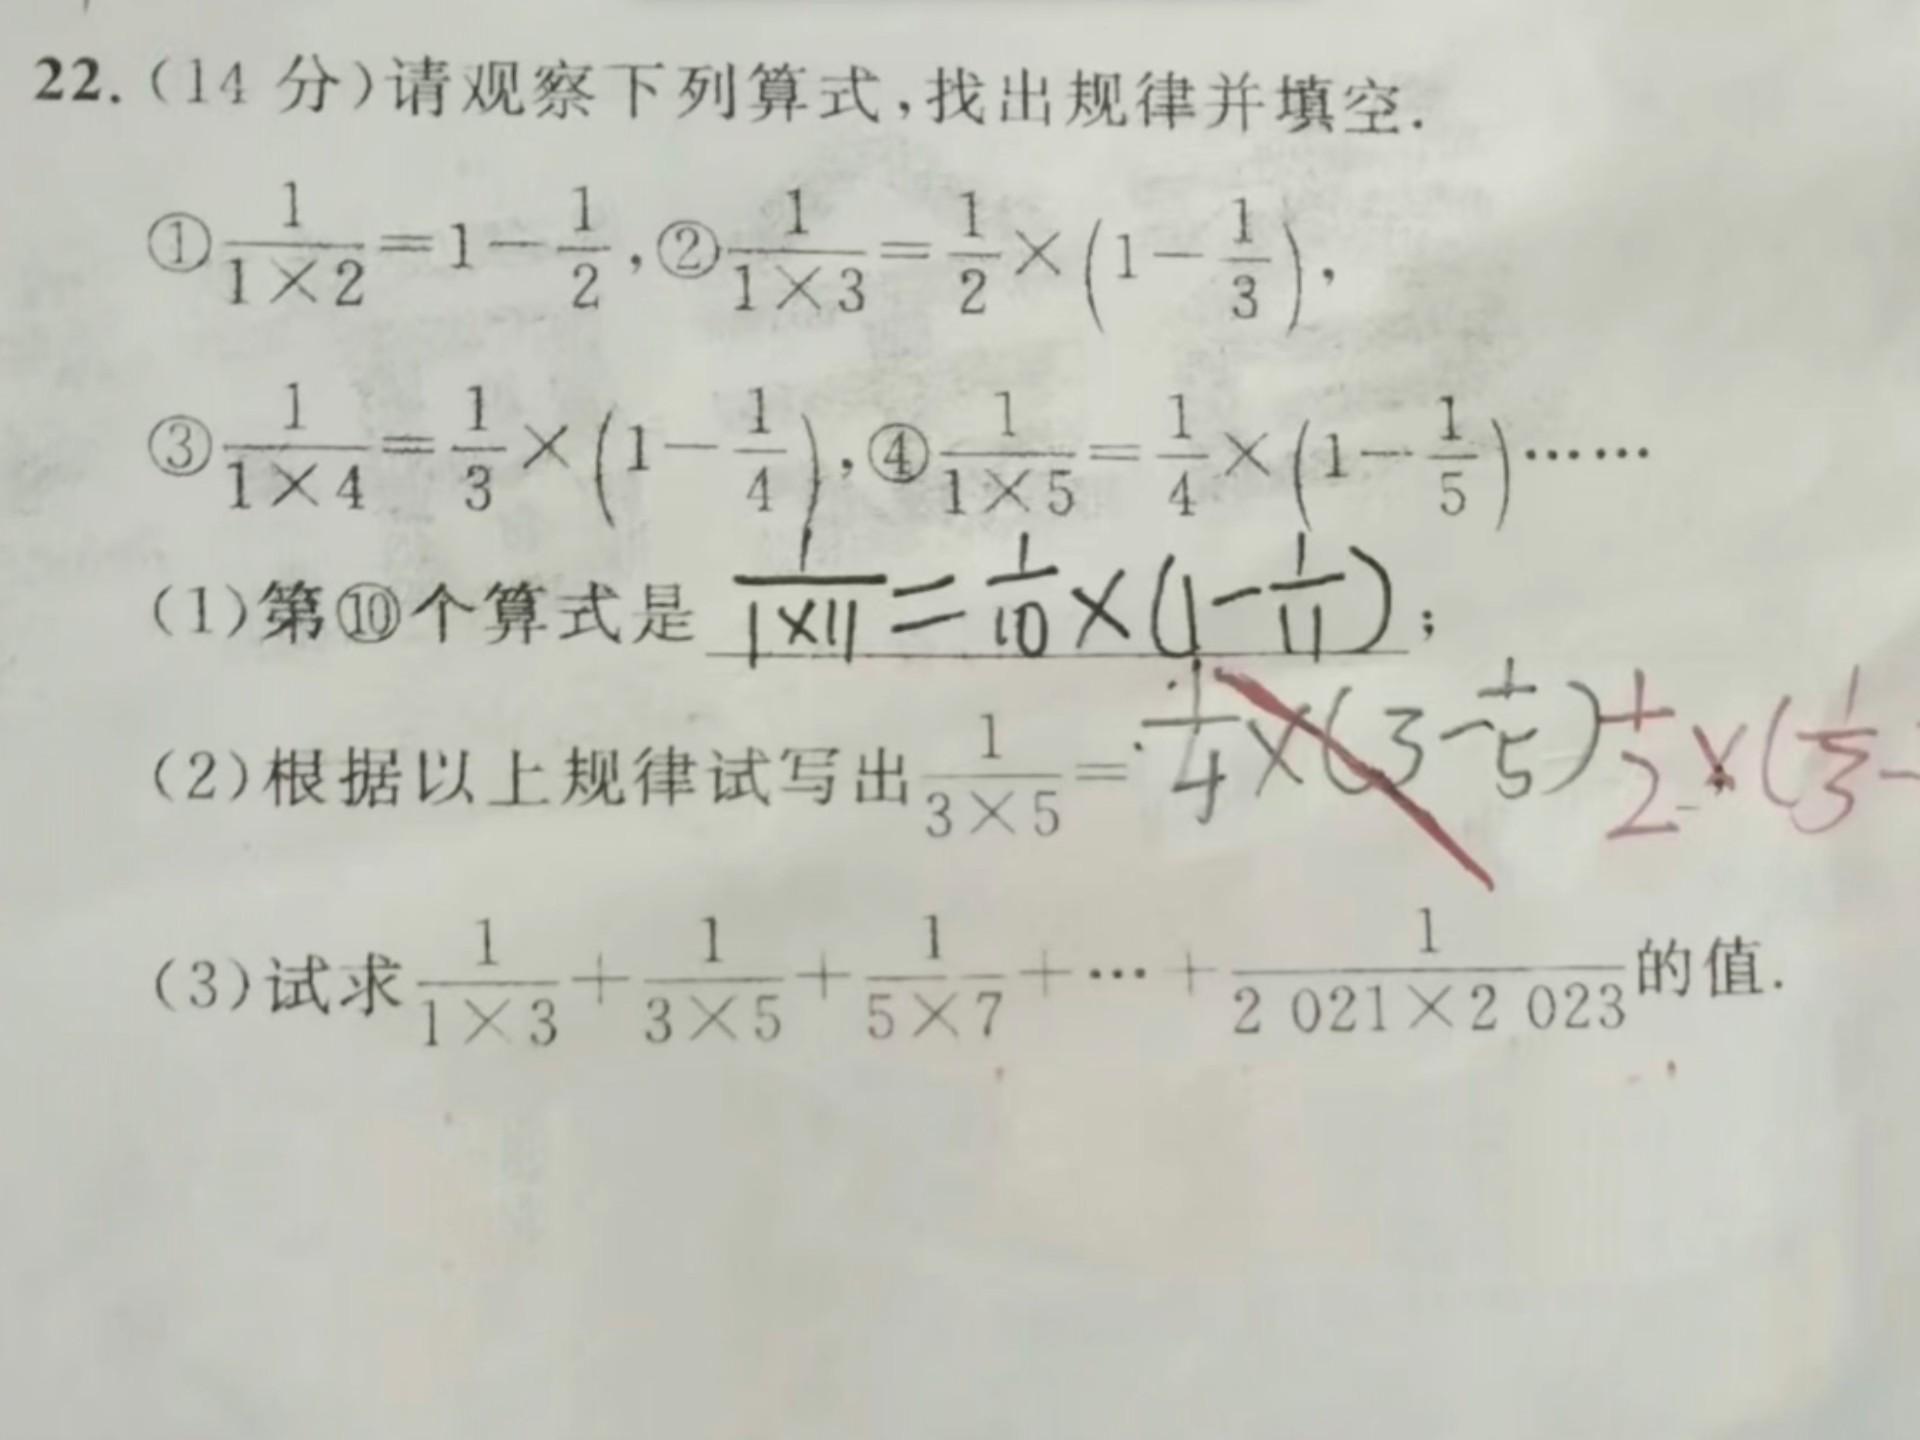 22.(14 分)请观察下列算式,找出规律并填空.
①1/(1×2)=1-1/2,②1/(1×3)=1/2×(1-1/3),
③1/(1×4)=1/3×(1-1/4),④1/(1×5)=1/4×(1-1/5)……
(1)第⑩个算式是 1/(1×11)=1/10×(1-1/11);
(2)根据以上规律试写出1/(3×5)=1/4×(3-1/5) 1/2×(1/3-
(3)试求1/(1×3)+1/(3×5)+1/(5×7)+…+1/(2 021×2 023)的值.